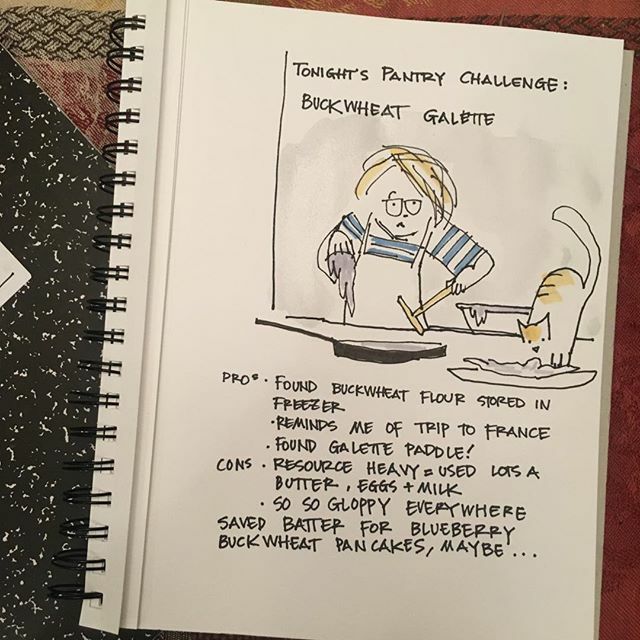 TONIGHT'S PANTRY CHALLENGE:
BUCKWHEAT GALETTE
PROS • FOUND BUCKWHEAT FLOUR STORED IN
FREEZER
• REMINDS ME OF TRIP TO FRANCE
• FOUND GALETTE PADDLE!
CONS • RESOURCE HEAVY = USED LOTS A
BUTTER, EGGS + MILK
• SO SO GLOPPY EVERYWHERE
SAVED BATTER FOR BLUEBERRY
BUCKWHEAT PANCAKES, MAYBE...